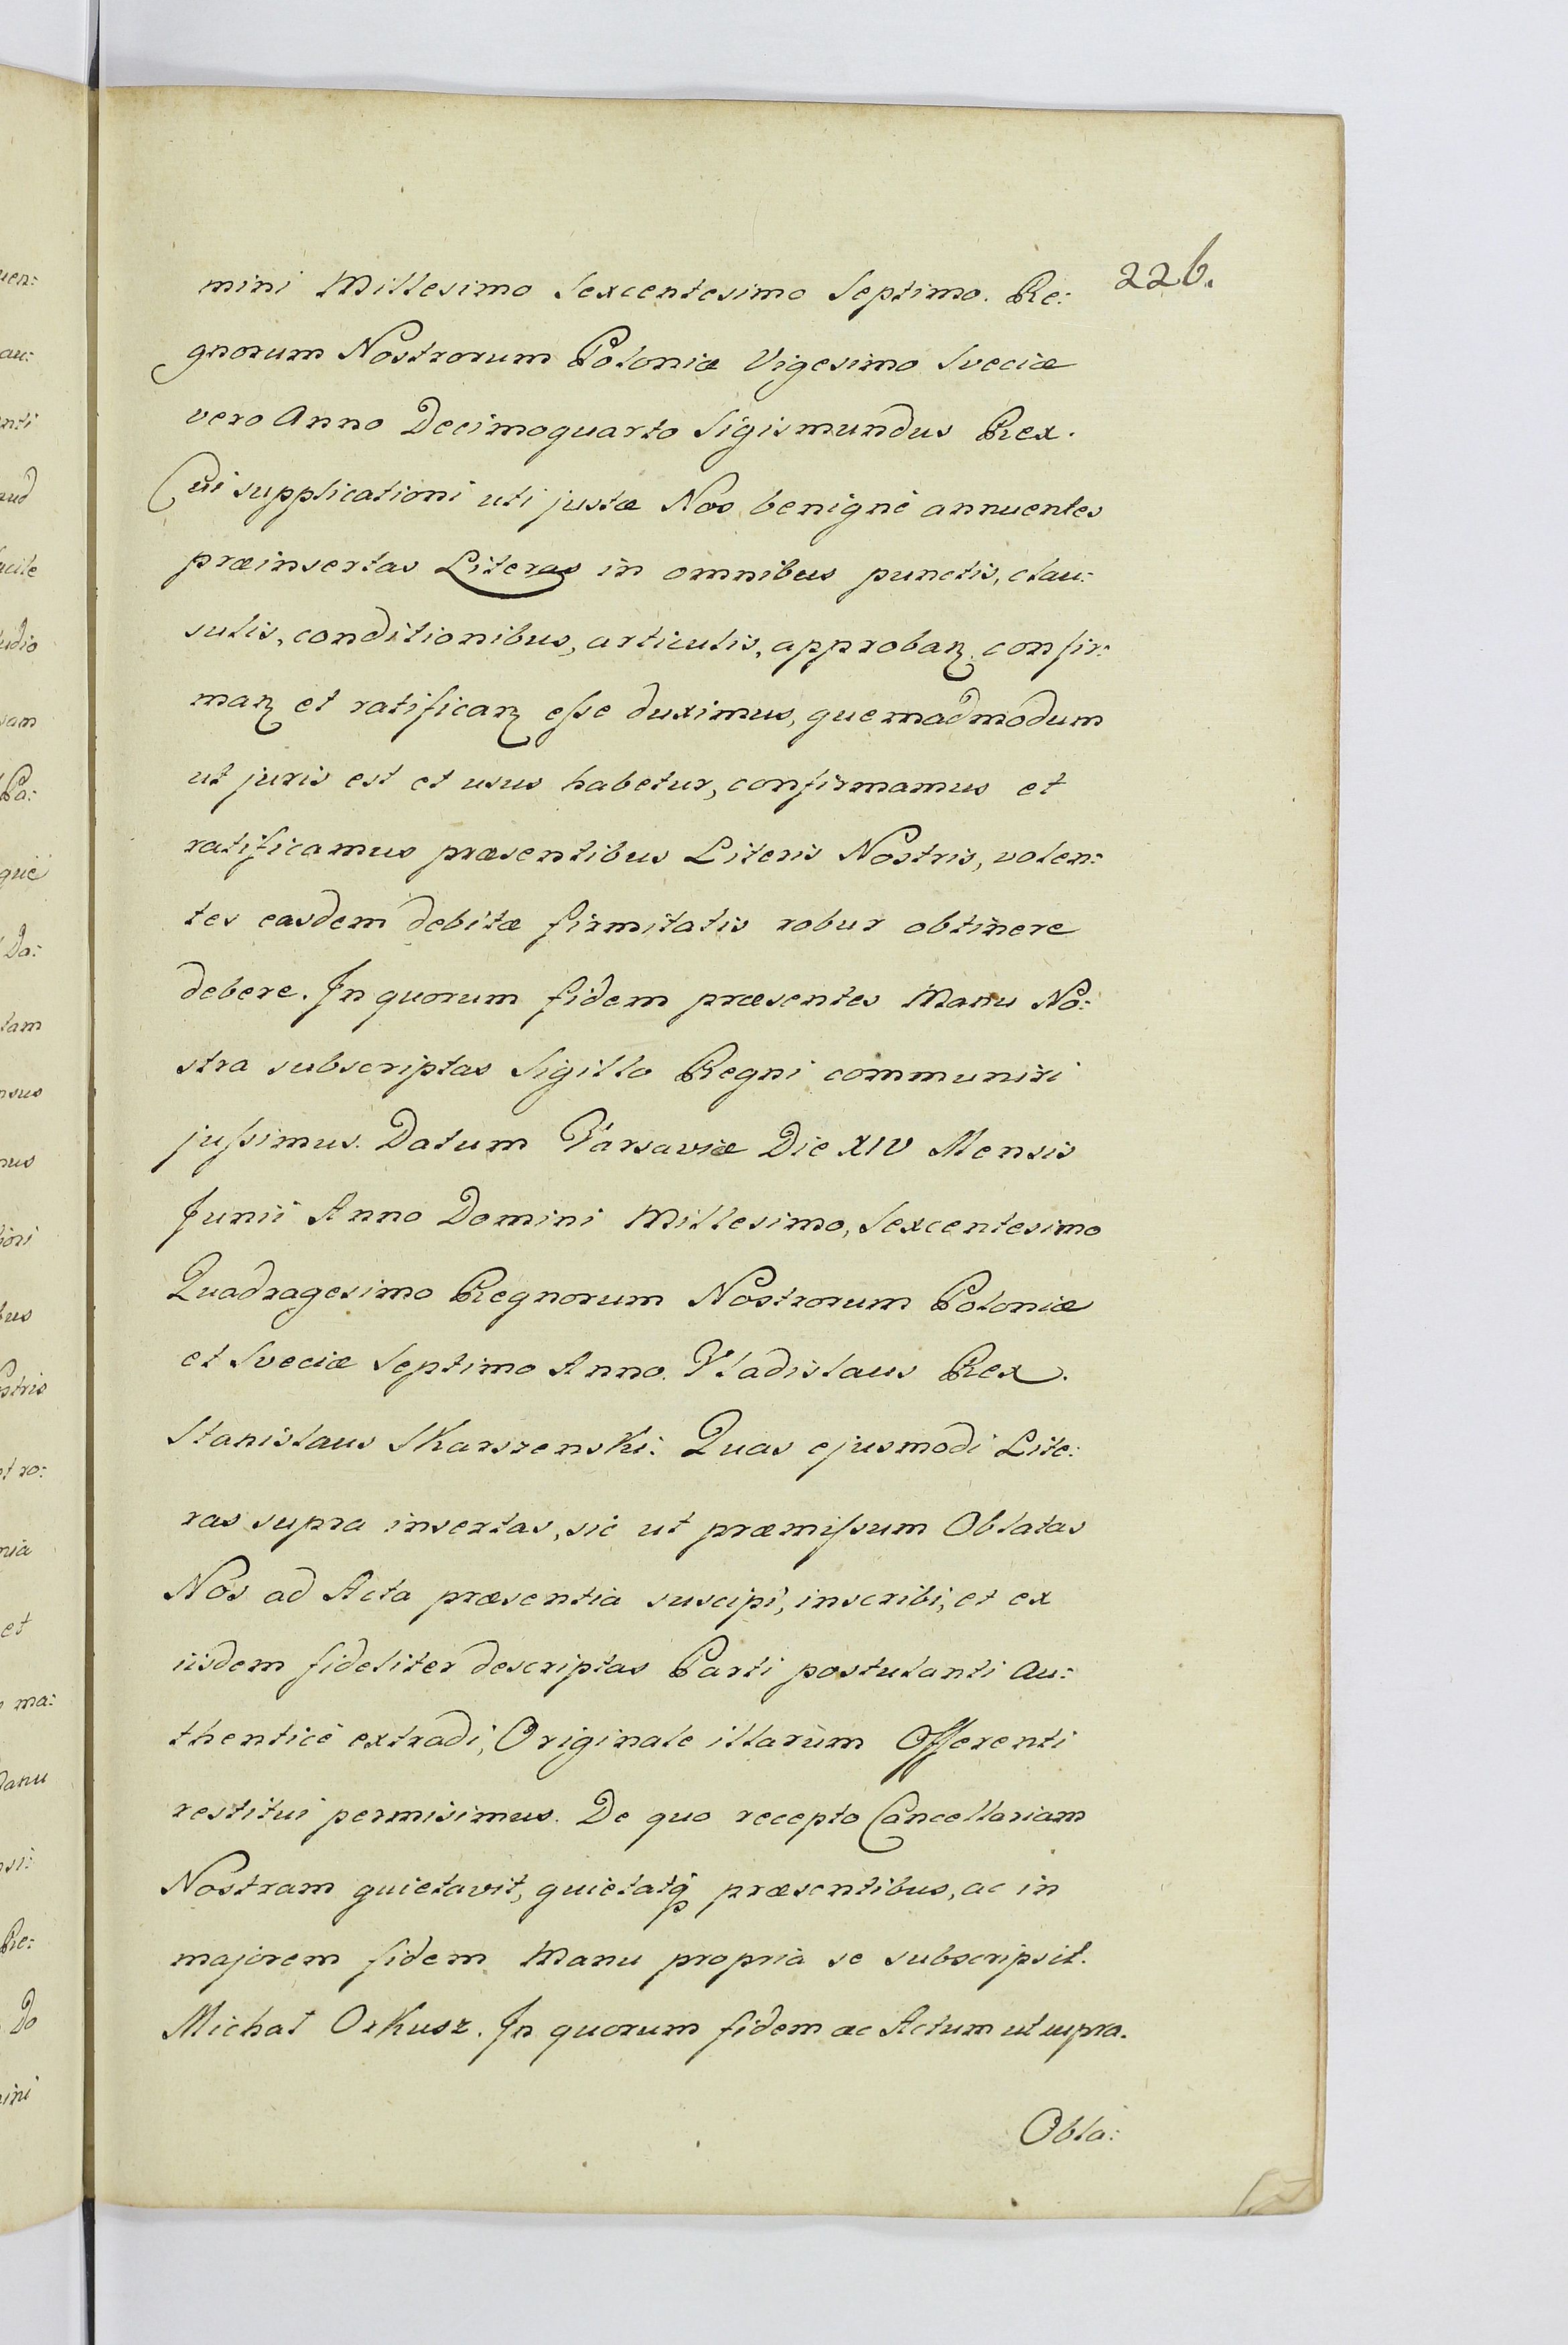 226.
mini Millesimo Sexcentesimo Septimo. Re:
gnorum Nostrorum Poloniæ Vigesimo Sveciæ
vero Anno Decimoquarto Sigismundus Rex.
Cui supplicationi uti justæ Nos benignè annuentes
præinsertas Literas in omnibus punctis, clau:
sulis, conditionibus, articulis, approbaɳ confir:
maɳ et ratificaɳ eſse duximus, quemadmodum
ut juris est et usus habetur, confirmamus et
ratificamus præsentibus Literis Nostris, volen:
tes easdem debitæ firmitatis robur obtinere
debere. In quorum fidem præsentes Manu No:
stra subscriptas Sigillo Regni communiri
juſsimus. Datum Varsaviæ Die XIV Mensis
Junii Anno Domini Millesimo, Sexcentesimo
Quadragesimo Regnorum Nostrorum Poloniæ
et Sveciæ Septimo Anno. Vladislaus Rex.
Stanislaus Skarszenski: Quas ejusmodi Lite:
ras supra insertas, sic ut præmiſsum Oblatas
Nos ad Acta præsentia suscipi, inscribi, et ex
iisdem fideliter descriptas Parti postulanti Au:
thenticè extradi, Originale illarum Offerenti
restitui permisimus. De quo recepto Cancellariam
Nostram quietavit, quietatq præsentibus, ac in
majorem fidem Manu propria se subscripsit.
Michał Orkusz. In quorum fidem ac Actum ut supra.
Obla: